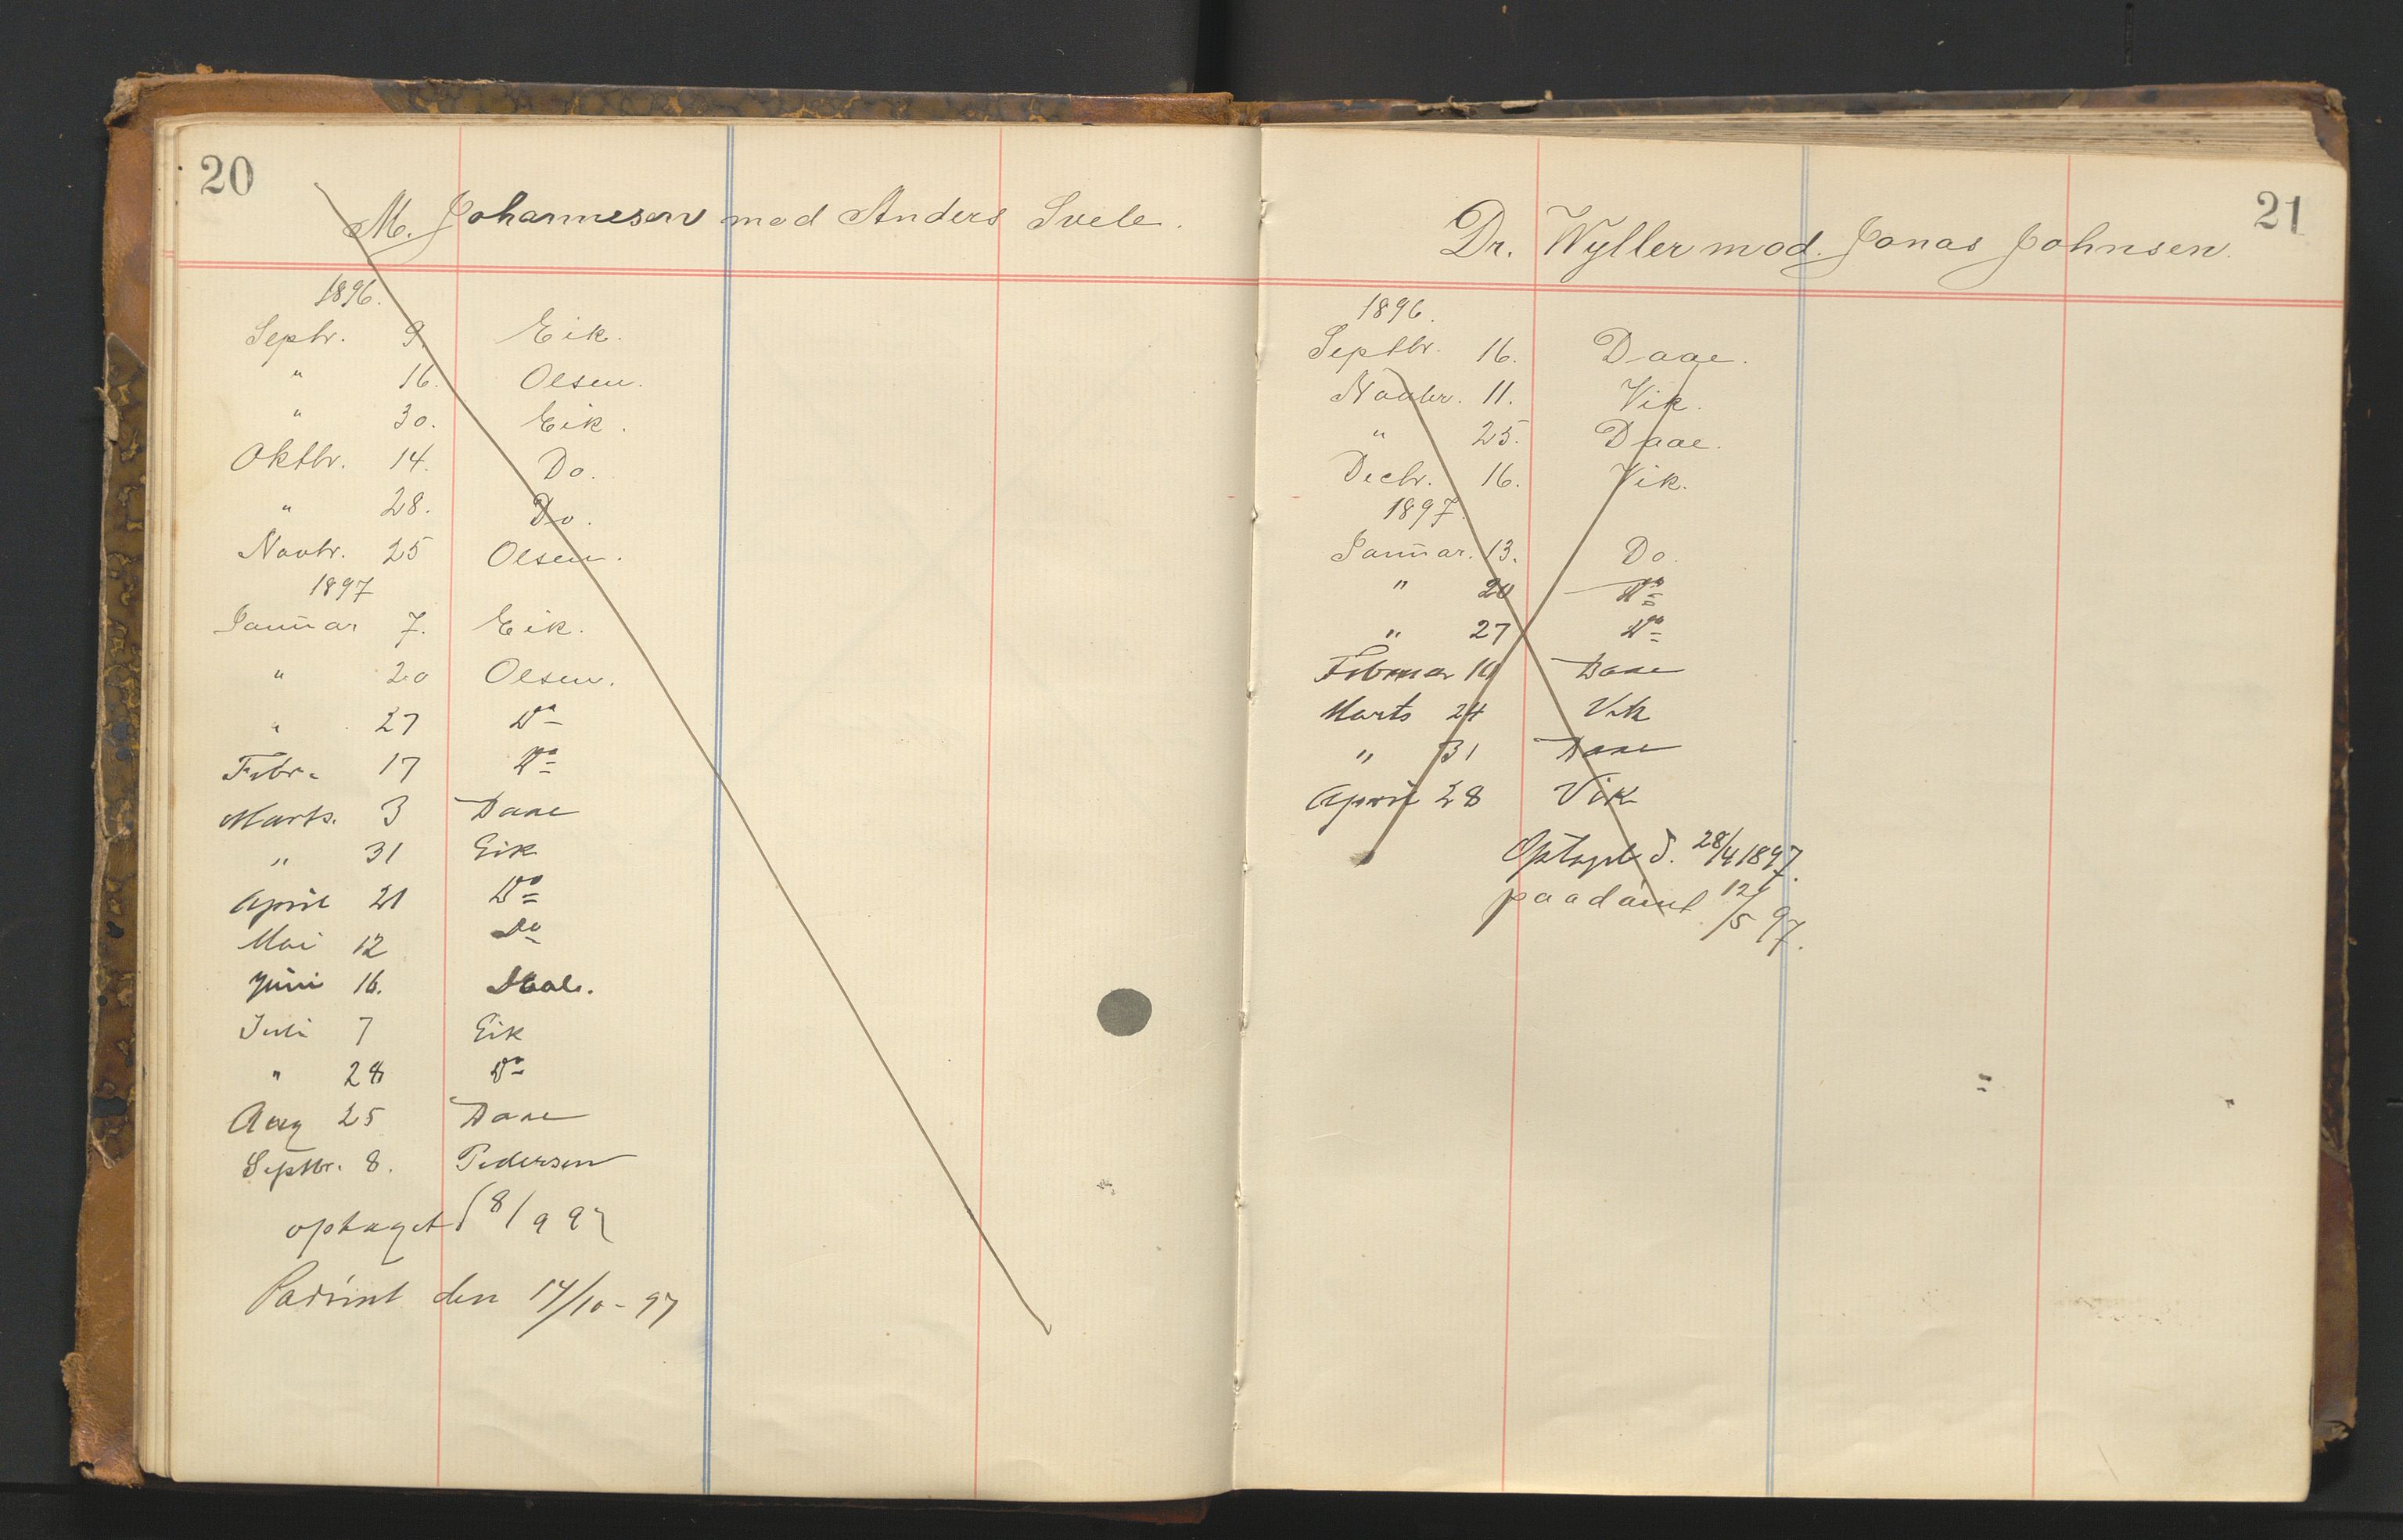 20
M. Johannesen mod Anders Svele.
1896.
Septr. 9. Eik.
" 16. Olsen.
" 30. Eik.
Oktbr. 14. Do.
" 28. Do.
Novbr. 25 Olsen.
1897
Januar 7. Eik.
" 20 Olsen.
" 27 Do
Febr. 17 Do
Marts. 3 Daae
" 31 Eik
April 21 Do
Mai 12 Do
Juni 16.
Juli 7 Eik
" 28 Do
Aug 25 Daae
Septbr. 8. Pedersen
optaget d 8/9 97
Padømt den 14/10 - 97
21
Dr. Wyller mod. Jonas Johnsen.
1896.
Septbr. 16. Daae.
Novbr. 11. Vik.
" 25. Daae.
Decbr. 16. Vik.
1897.
Januar. 13. Do.
" 20 Do
" 27 Do
Februar Daae
Marts 24 Vik
" 31 Daae
April 28 Vik
Optaget d. 28/4 1897.
paadømt 12/5 97.